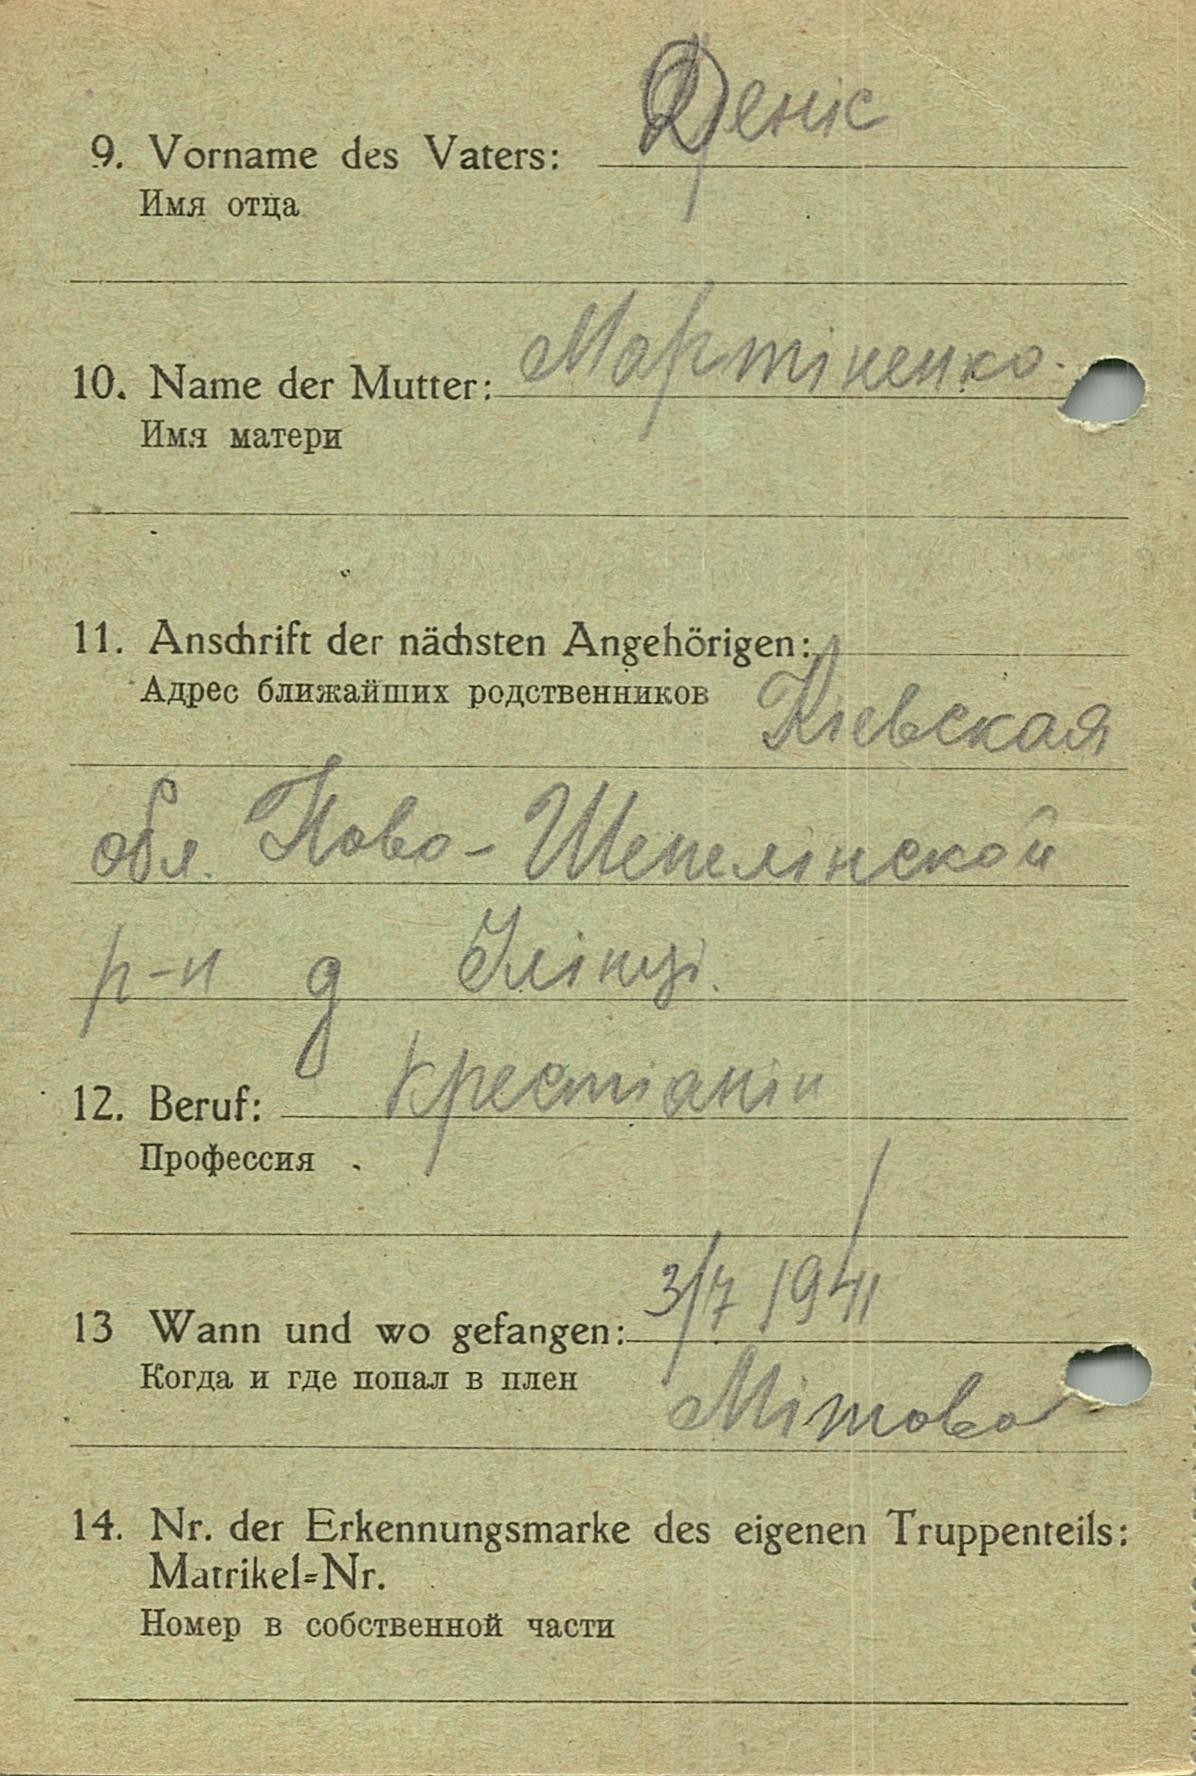 Деніс
9. Vorname des Vaters:
Имя отца
Мартіненко.
10. Name der Mutter:
Имя матери
11. Anschrift der nächsten Angehörigen:
Адрес ближайших родственников Кіевская
обл. Ново-Шепелінской
р-н д Іліпці.
12. Beruf: крестіанін
Профессия
13 Wann und wo gefangen: 3/7 1941
Когда и где попал в плен Мітово
14. Nr. der Erkennungsmarke des eigenen Truppenteils:
Matrikel=Nr.
Номер в собственной части